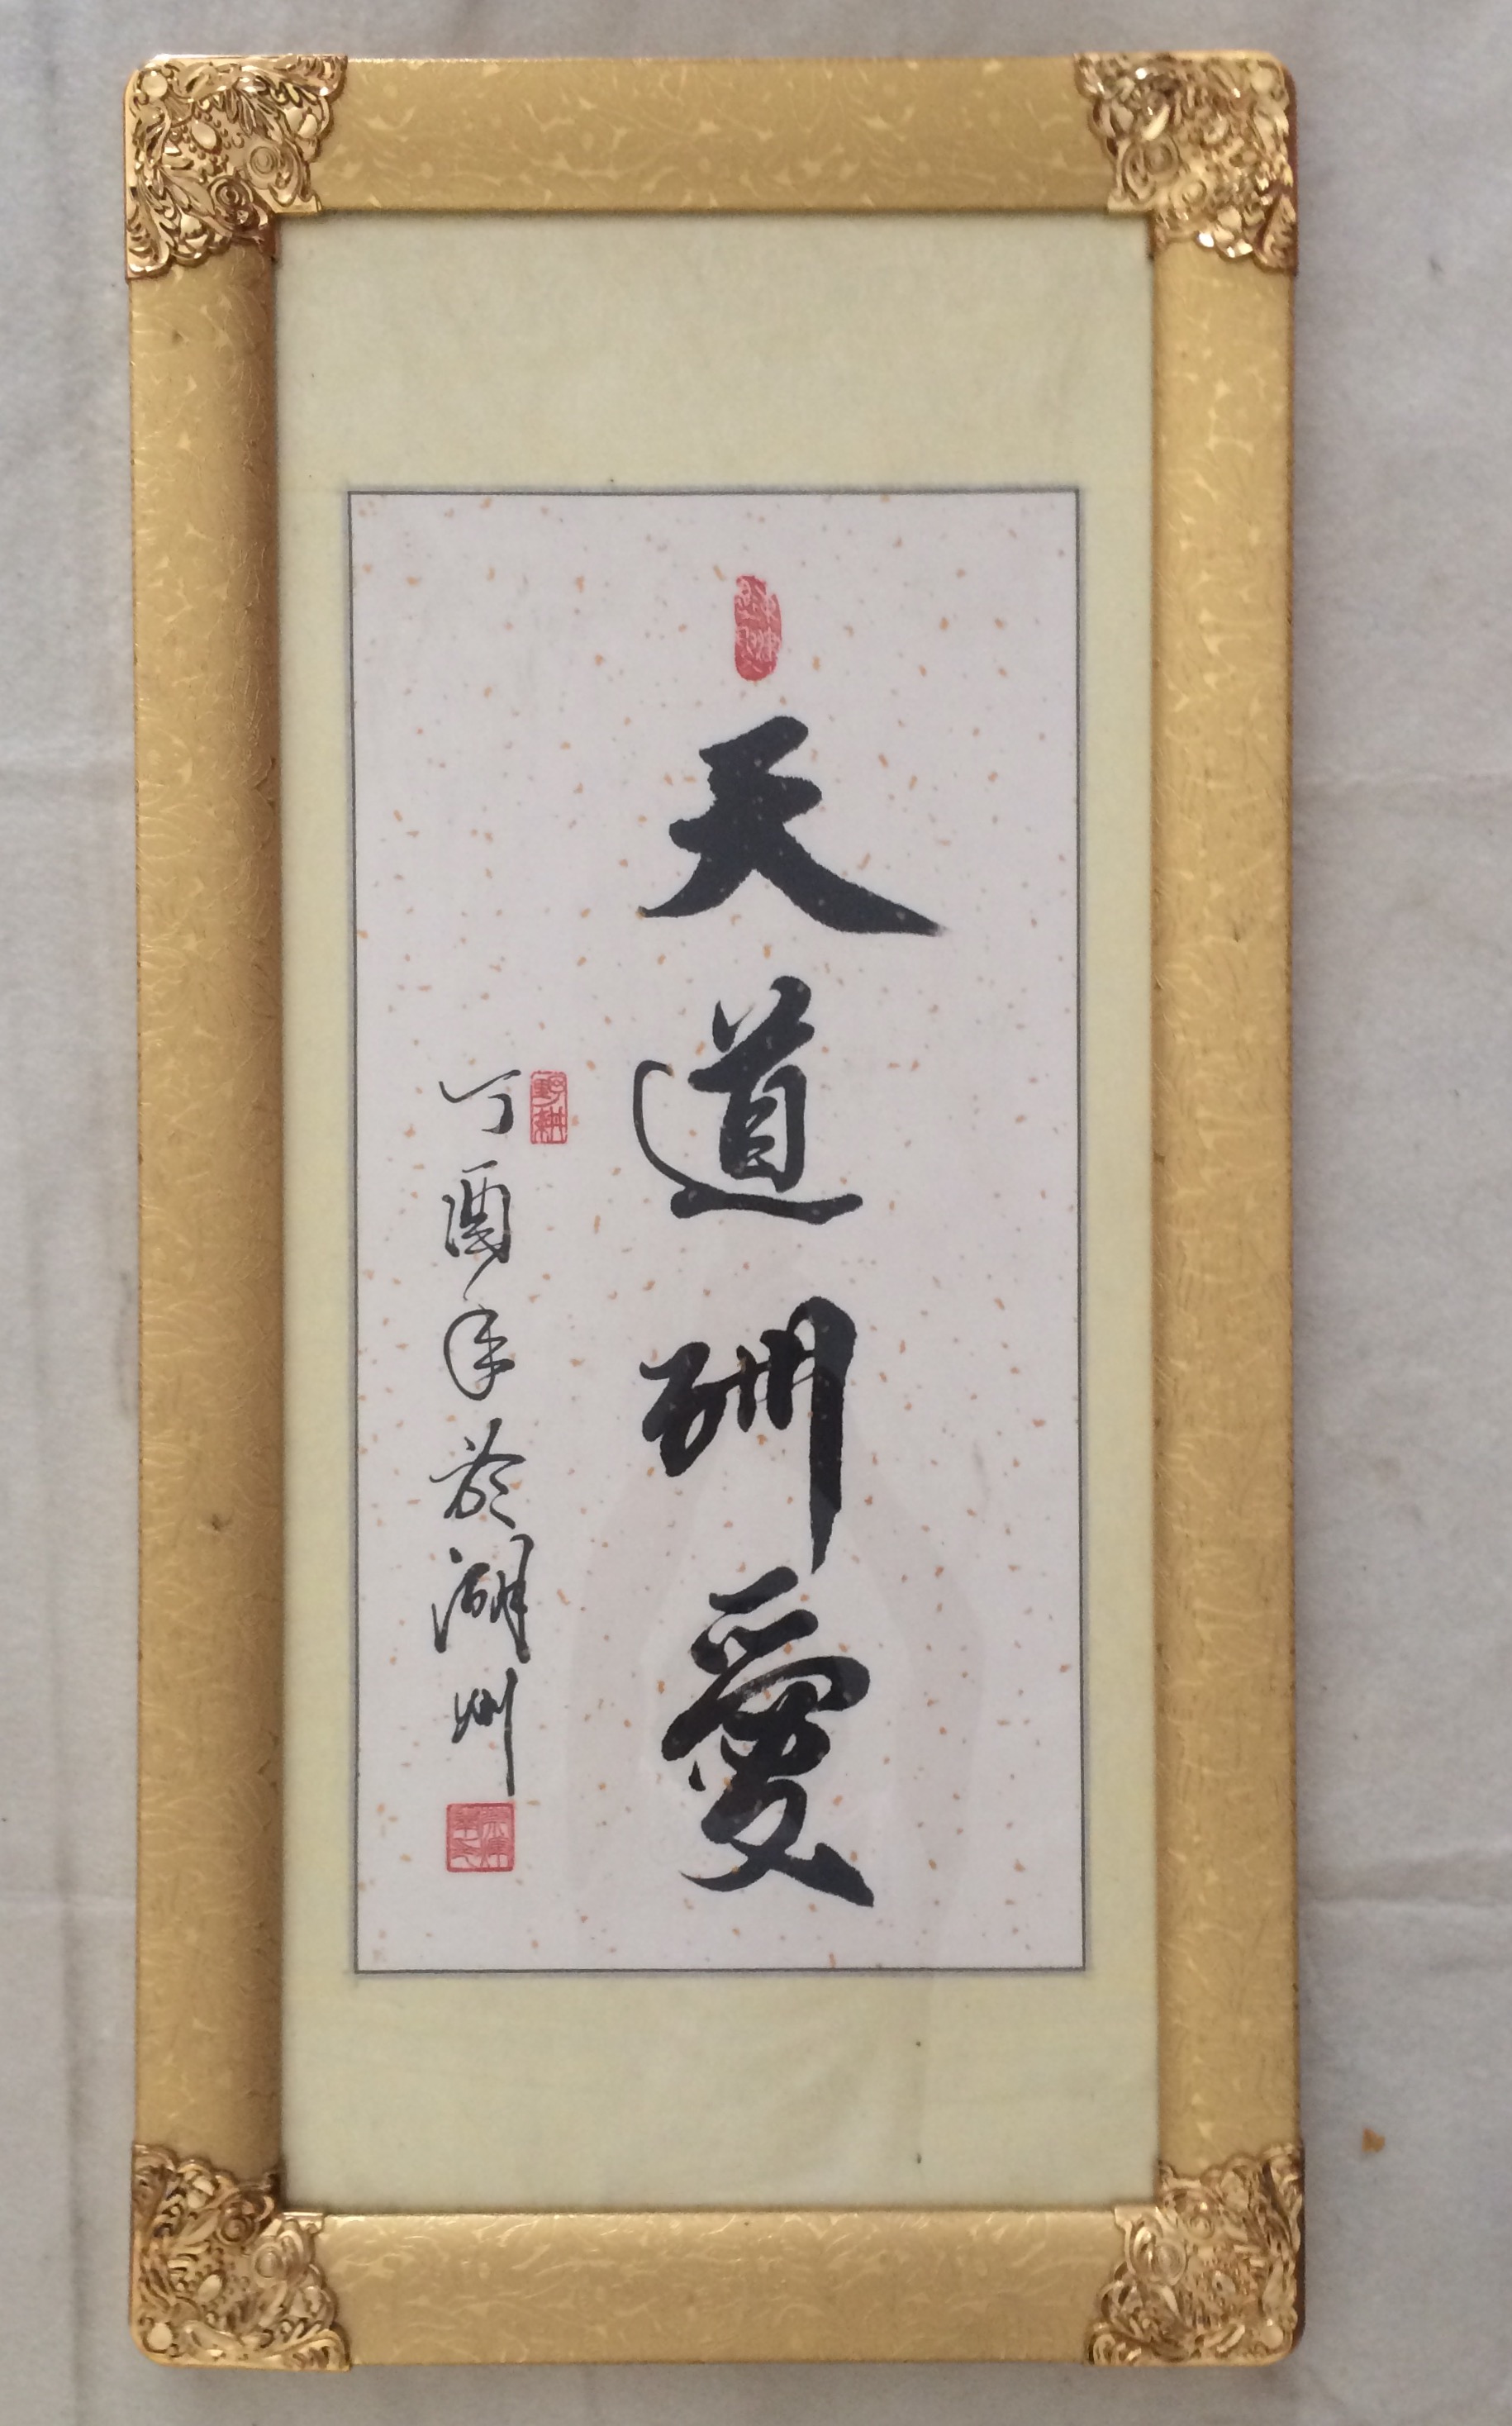 天道酬愛
丁酉年於湖州